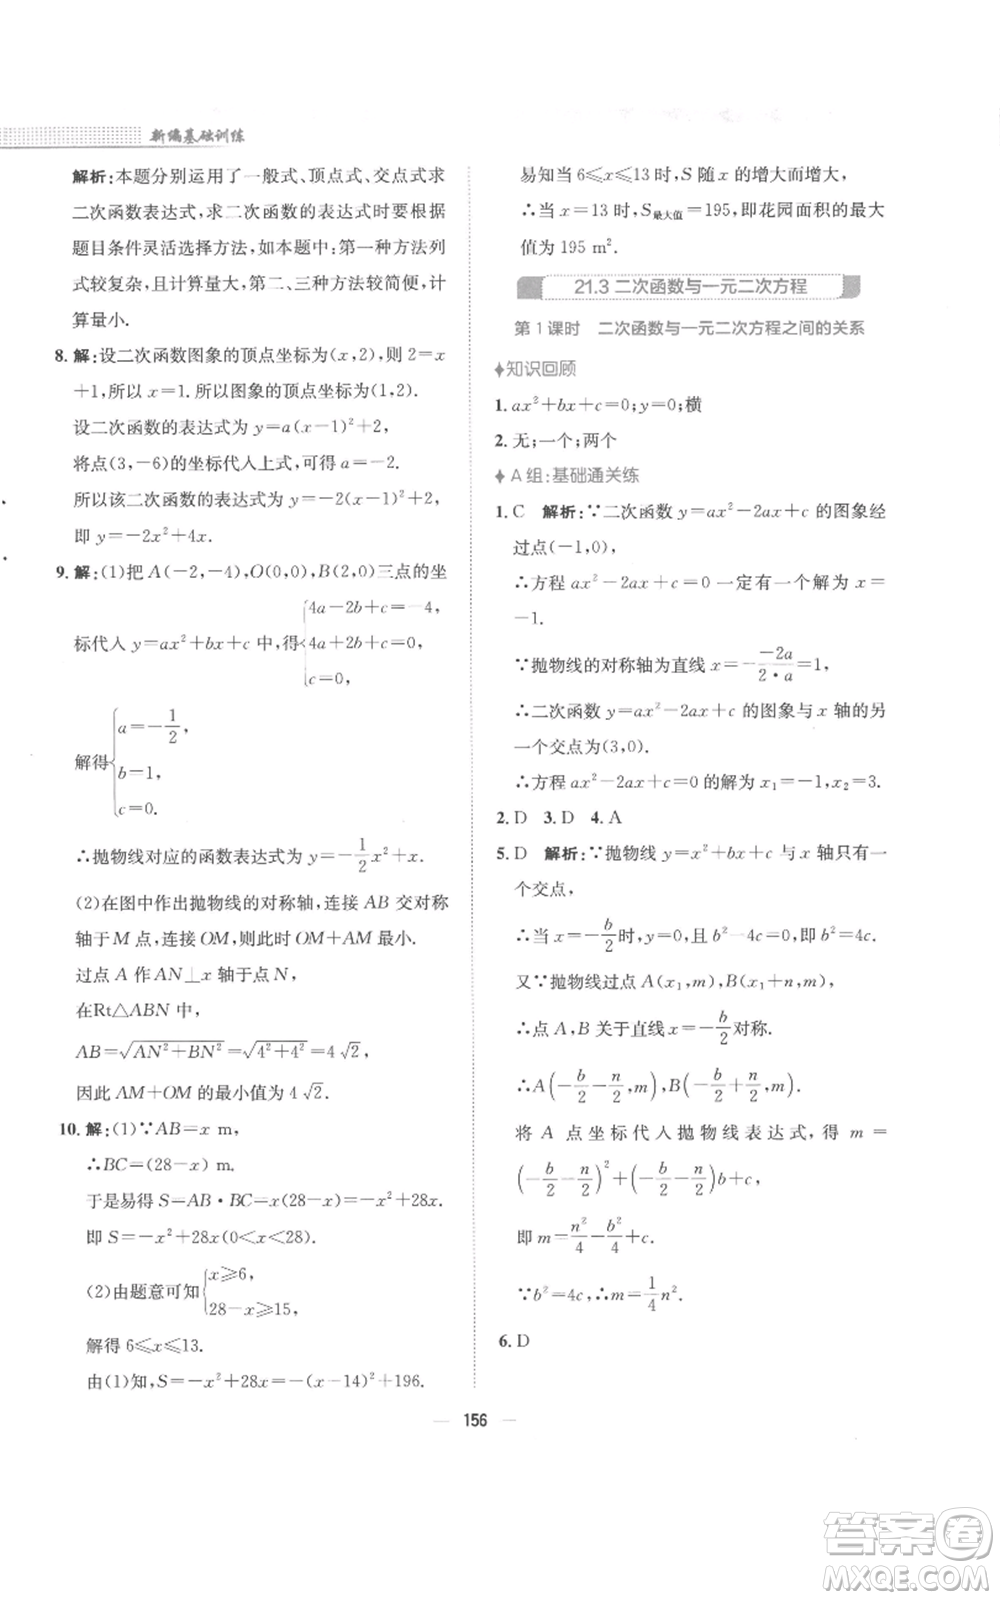 新编基础训练
解析:本题分别运用了一般式、顶点式、交点式求
二次函数表达式,求二次函数的表达式时要根据
题目条件灵活选择方法,如本题中:第一种方法列
式较复杂,且计算量大,第二、三种方法较简便,计
算量小.
8. 解:设二次函数图象的顶点坐标为(x,2),则 2=x
+1,所以 x=1. 所以图象的顶点坐标为(1,2).
设二次函数的表达式为 y=a(x-1)²+2,
将点(3,-6)的坐标代人上式,可得 a=-2.
所以该二次函数的表达式为 y=-2(x-1)²+2,
即 y=-2x²+4x.
9. 解:(1)把 A(-2,-4),O(0,0),B(2,0)三点的坐
标代人 y=ax²+bx+c 中,得{4a-2b+c=-4,
4a+2b+c=0,
c=0,
解得{a=-1/2,
b=1,
c=0.
∴抛物线对应的函数表达式为 y=-1/2x²+x.
(2)在图中作出抛物线的对称轴,连接 AB 交对称
轴于 M 点,连接 OM,则此时 OM+AM 最小.
过点 A 作 AN⊥x 轴于点 N,
在Rt△ABN 中,
AB=√(AN²+BN²)=√(4²+4²)=4√2,
因此 AM+OM 的最小值为 4√2.
10. 解:(1)∵AB=x m,
∴BC=(28-x) m.
于是易得 S=AB·BC=x(28-x)=-x²+28x.
即 S=-x²+28x(0<x<28).
(2)由题意可知{x≥6,
28-x≥15,
解得 6≤x≤13.
由(1)知,S=-x²+28x=-(x-14)²+196.
易知当 6≤x≤13 时,S 随 x 的增大而增大,
∴当 x=13 时,S最大值=195,即花园面积的最大
值为 195 m².
21.3 二次函数与一元二次方程
第 1 课时 二次函数与一元二次方程之间的关系
知识回顾
1. ax²+bx+c=0;y=0;横
2. 无;一个;两个
A 组:基础通关练
1. C 解析:∵二次函数 y=ax²-2ax+c 的图象经
过点(-1,0),
∴方程 ax²-2ax+c=0 一定有一个解为 x=
-1.
∵抛物线的对称轴为直线 x=-(-2a)/(2·a)=1,
∴二次函数 y=ax²-2ax+c 的图象与 x 轴的另
一个交点为(3,0).
∴方程 ax²-2ax+c=0 的解为 x₁=-1,x₂=3.
2. D 3. D 4. A
5. D 解析:∵抛物线 y=x²+bx+c 与 x 轴只有一
个交点,
∴当 x=-b/2时,y=0,且 b²-4c=0,即 b²=4c.
又∵抛物线过点 A(x₁,m),B(x₁+n,m),
∴点 A,B 关于直线 x=-b/2对称.
∴A(-b/2-n/2,m),B(-b/2+n/2,m).
将 A 点坐标代人抛物线表达式,得 m=
(-b/2-n/2)²+(-b/2-n/2)b+c,
即 m=n²/4-b²/4+c.
∵b²=4c,∴m=1/4n².
6. D
156
答案卷
MXQE.COM